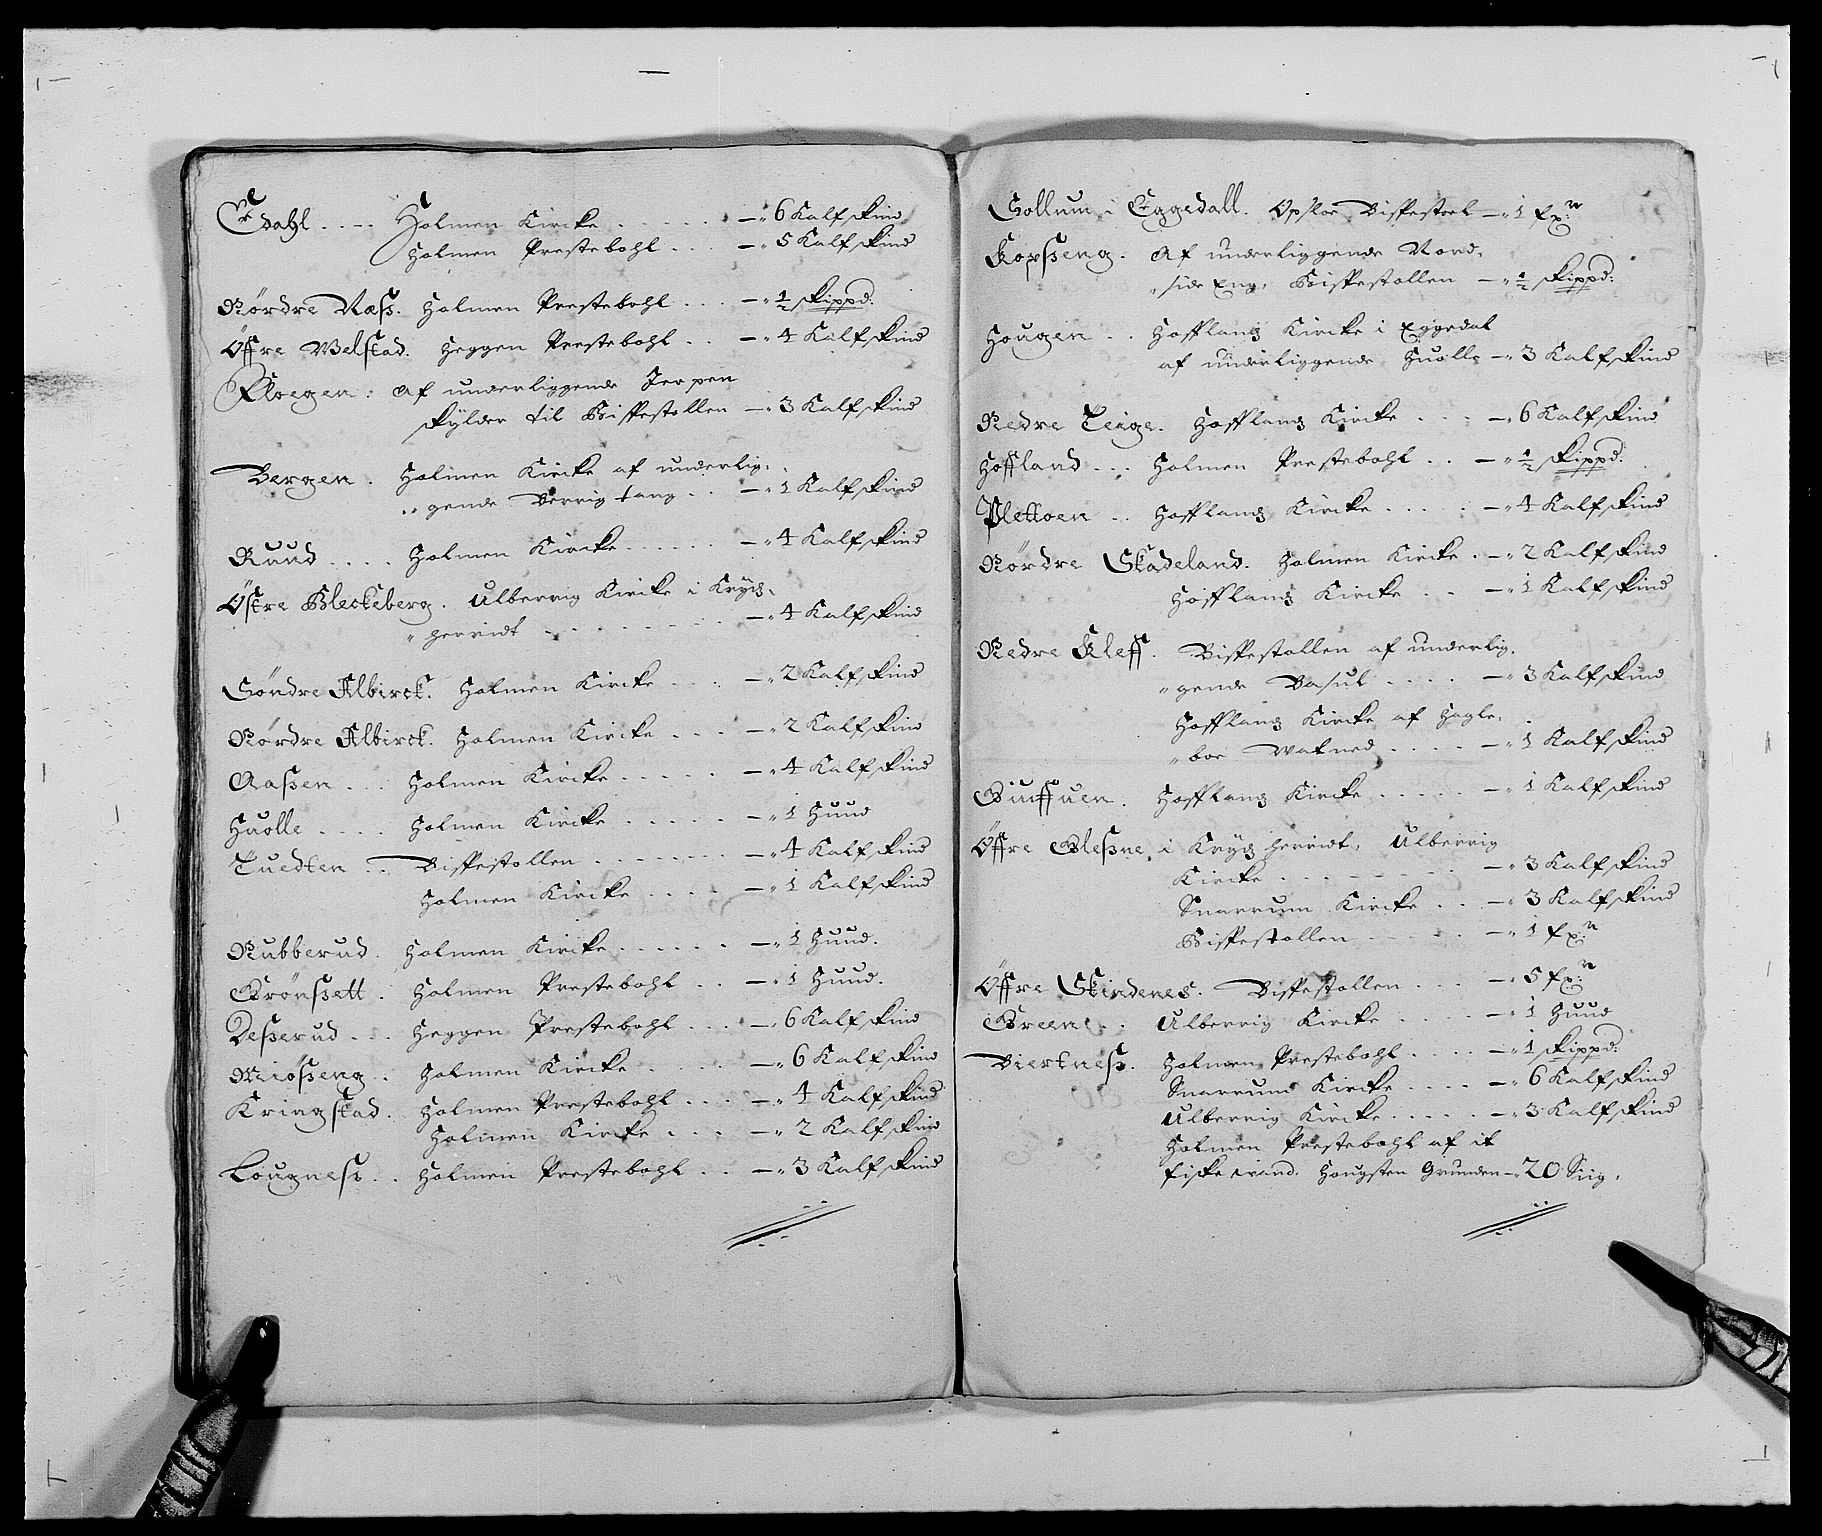 Edahl .... Holmen Kircke ...... — 6 Kalfskind
Holmen Prestebohl ... — 5 Kalfskind
Nördre Næss. Holmen Prestebohl ... — ½ Skippd:
Öffre Welstad. Heggen Prestebohl .. — 4 Kalfskind
Floegen: Af underliggende Jerpen
skylder til Bispestollen — 3 Kalfskind
Bergen. Holmen Kircke af underlig,
gende Berrig tang .. — 1 Kalfskind
Ruud .... Holmen Kircke ...... — 4 Kalfskind
Östre Bleckeberg. Ulberrig Kircke i Krys,
herridt ......... — 4 Kalfskind
Söndre Albirck. Holmen Kircke .... — 2 Kalfskind
Nördre Albirck. Holmen Kircke ... — 2 Kalfskind
Aassen ... Holmen Kircke ..... — 4 Kalfskind
Huolle .... Holmen Kircke ..... — 1 Huud
Tuedten .. Bispestollen ....... — 4 Kalfskind
Holmen Kircke .... — 1 Kalfskind
Rubberud. Holmen Kircke ...... — 1 Huud.
Grönssett. Holmen Prestebohl .. — 1 Huud.
Desserud ... Heggen Prestebohl ... — 6 Kalfskind
Miösseng .. Holmen Kircke ..... — 6 Kalfskind
Kringstad. Holmen Prestebohl ... — 4 Kalfskind
Holmen Kircke .... — 2 Kalfskind
Lougness .. Holmen Prestebohl .. — 3 Kalfskind
Sollum i Eggedall. Opsloe Bispestoel — 1 fx:n
Kopsseng. Af underliggende Nord,
side Eng, Bispestollen — ½ Skippd:
Hougen .. Hofflands Kircke i Eggedal
af underliggende Huolle — 3 Kalfskind
Nedre Teige. Hofflands Kircke ... — 6 Kalfskind
Hoffland ... Holmen Prestebohl .. — ½ Skippd:
Plettoen .. Hofflands Kircke ..... — 4 Kalfskind
Nördre Skadeland. Holmen Kircke . — 2 Kalfskind
Hofflands Kircke .. — 1 Kalfskind
Nedre Kleff. Bispestollen af underlig,
gende Basul .... — 3 Kalfskind
Hofflands Kircke af Hagle,
boe .... — 1 Kalfskind
Guffuen. Hofflands Kircke ..... — 1 Kalfskind
Öffre Glessne, i Krys herridt, Ulberrig
Kircke ........ — 3 Kalfskind
Snarrum Kircke .. — 3 Kalfskind
Bispestollen ..... — 1 fx:n
Öffre Skindenes. Bispestollen ... — 5 fx:n
Green .. Ulberrig Kircke ..... — 1 Huud
Biertness. Holmen Prestebohl .... — 1 Skippd:
Snarrum Kircke .... — 6 Kalfskind
Ulberrig Kircke ..... — 3 Kalfskind
Holmen Prestebohl af it
fiske wand, Hougsten Grunden — 20 Siig,